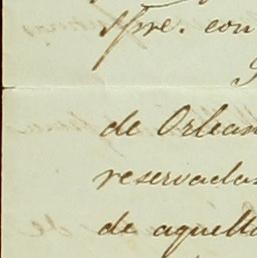 Spre. con
de Orlean
reservadas
de aquella